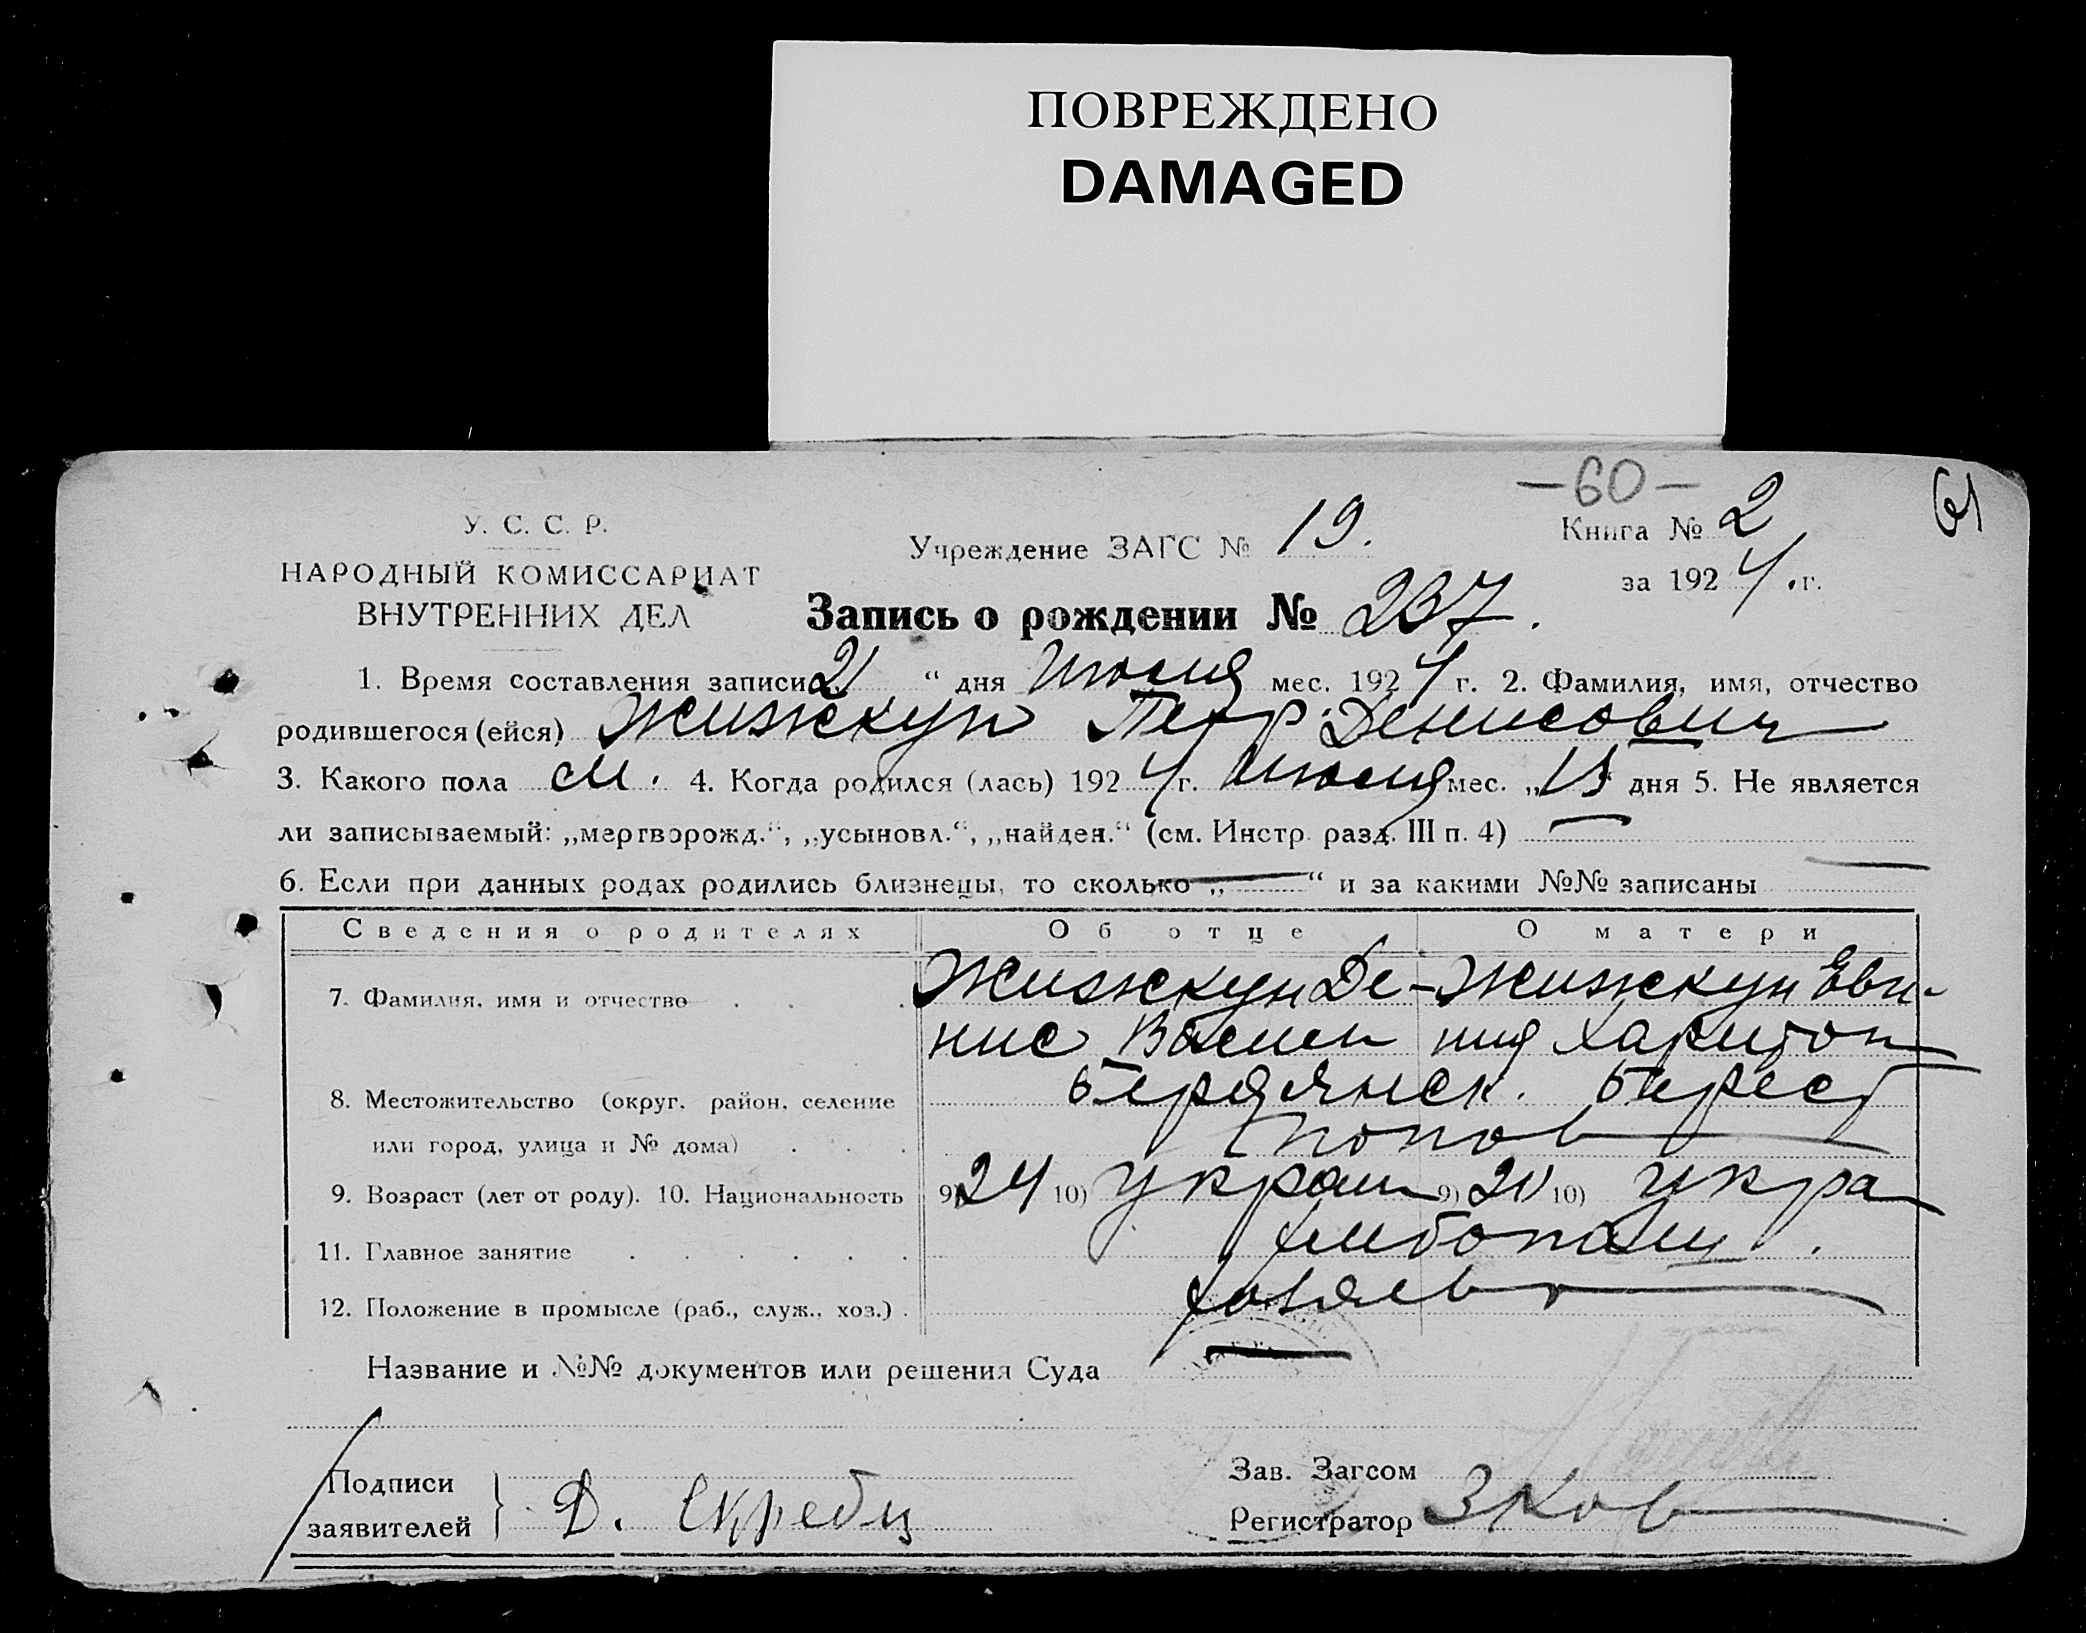 ПОВРЕЖДЕНО
DAMAGED
— 60 —
61
У. С. С. Р.
НАРОДНЫЙ КОМИССАРИАТ
ВНУТРЕННИХ ДЕЛ
Учреждение ЗАГС № 19.
Книга № 2
за 1924.г.
Запись о рождении № 237.
1. Время составления записи 21 “ дня Июля мес. 1924 г. 2. Фамилия, имя, отчество
родившегося (ейся) Жижкун Петр Денисович
3. Какого пола М. 4. Когда родился (лась) 1924 г. Июля мес. „15“ дня 5. Не является
ли записываемый: „мертворожд.“, „усыновл.“, „найден.“ (см. Инстр. разд. III п. 4) —
6. Если при данных родах родились близнецы, то сколько „—“ и за какими №№ записаны —
Сведения о родителях Об отце О матери
7. Фамилия, имя и отчество . . . Жижкун Де- Жижкун Евге-
нис Васил ния Харитон
8. Местожительство (округ, район, селение Бердянск. Берест
или город, улица и № дома) . . . Попов
9. Возраст (лет от роду). 10. Национальность 9) 24 10) Украин 9) 20 10) Укра
11. Главное занятие . . . . . . Хлебопашц.
12. Положение в промысле (раб., служ., хоз.) . хозяев
Название и №№ документов или решения Суда —
Подписи
заявителей } Д. Скребц
Зав. Загсом
Регистратор